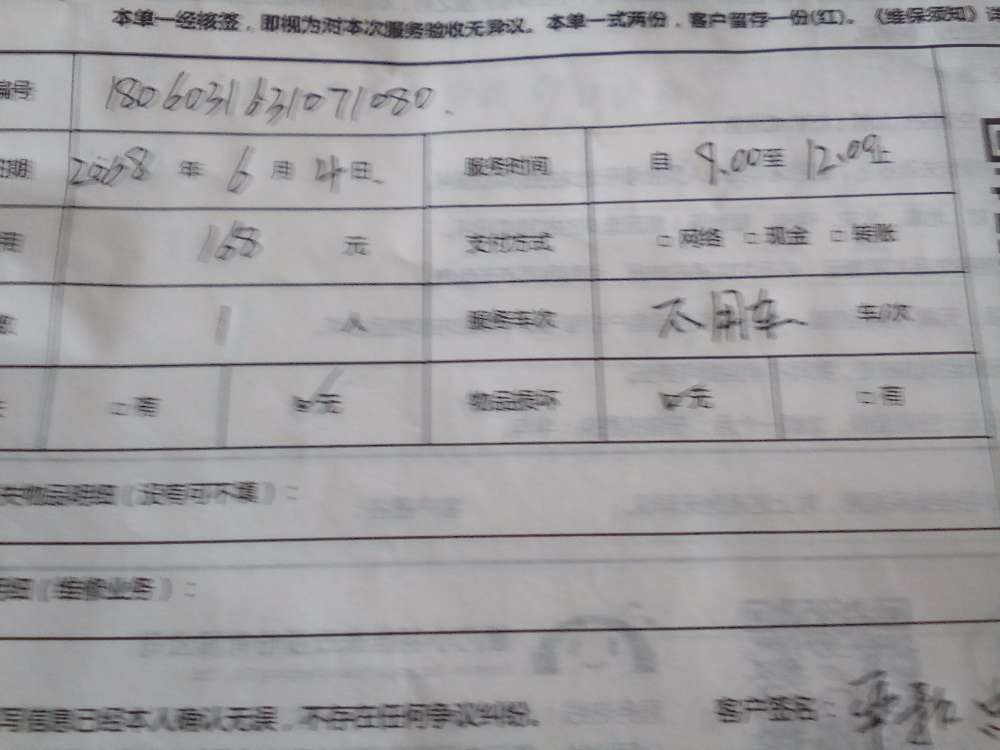 本单一经核签，即视为对本次服务验收无异议。本单一式两份，客户留存一份(红)。《维保须知》
编号 1806031631071080.
日期 2018 年 6 月 4 日 服务时间 自 9.00 至 12.00 止
168 元 支付方式 □ 网络 □ 现金 □ 转账
数 1 人 服务车次 不用车 车/次
□ 有 □ 无 物品损坏 □ 无 □ 有
失物品明细（没有可不填）：
明细（维修业务）：
写信息已经本人确认无误，不存在任何争议纠纷。 客户签名：